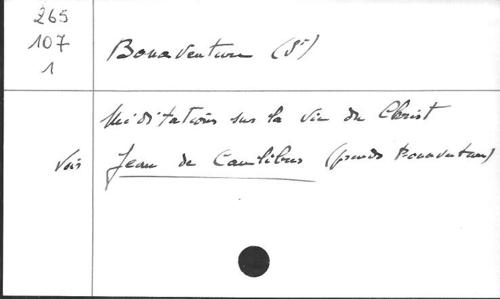 265
107
1
Bonaventure (St)
Méditations sur la vie du Christ
Voir Jean de Caulibus (pseudo Bonaventure)